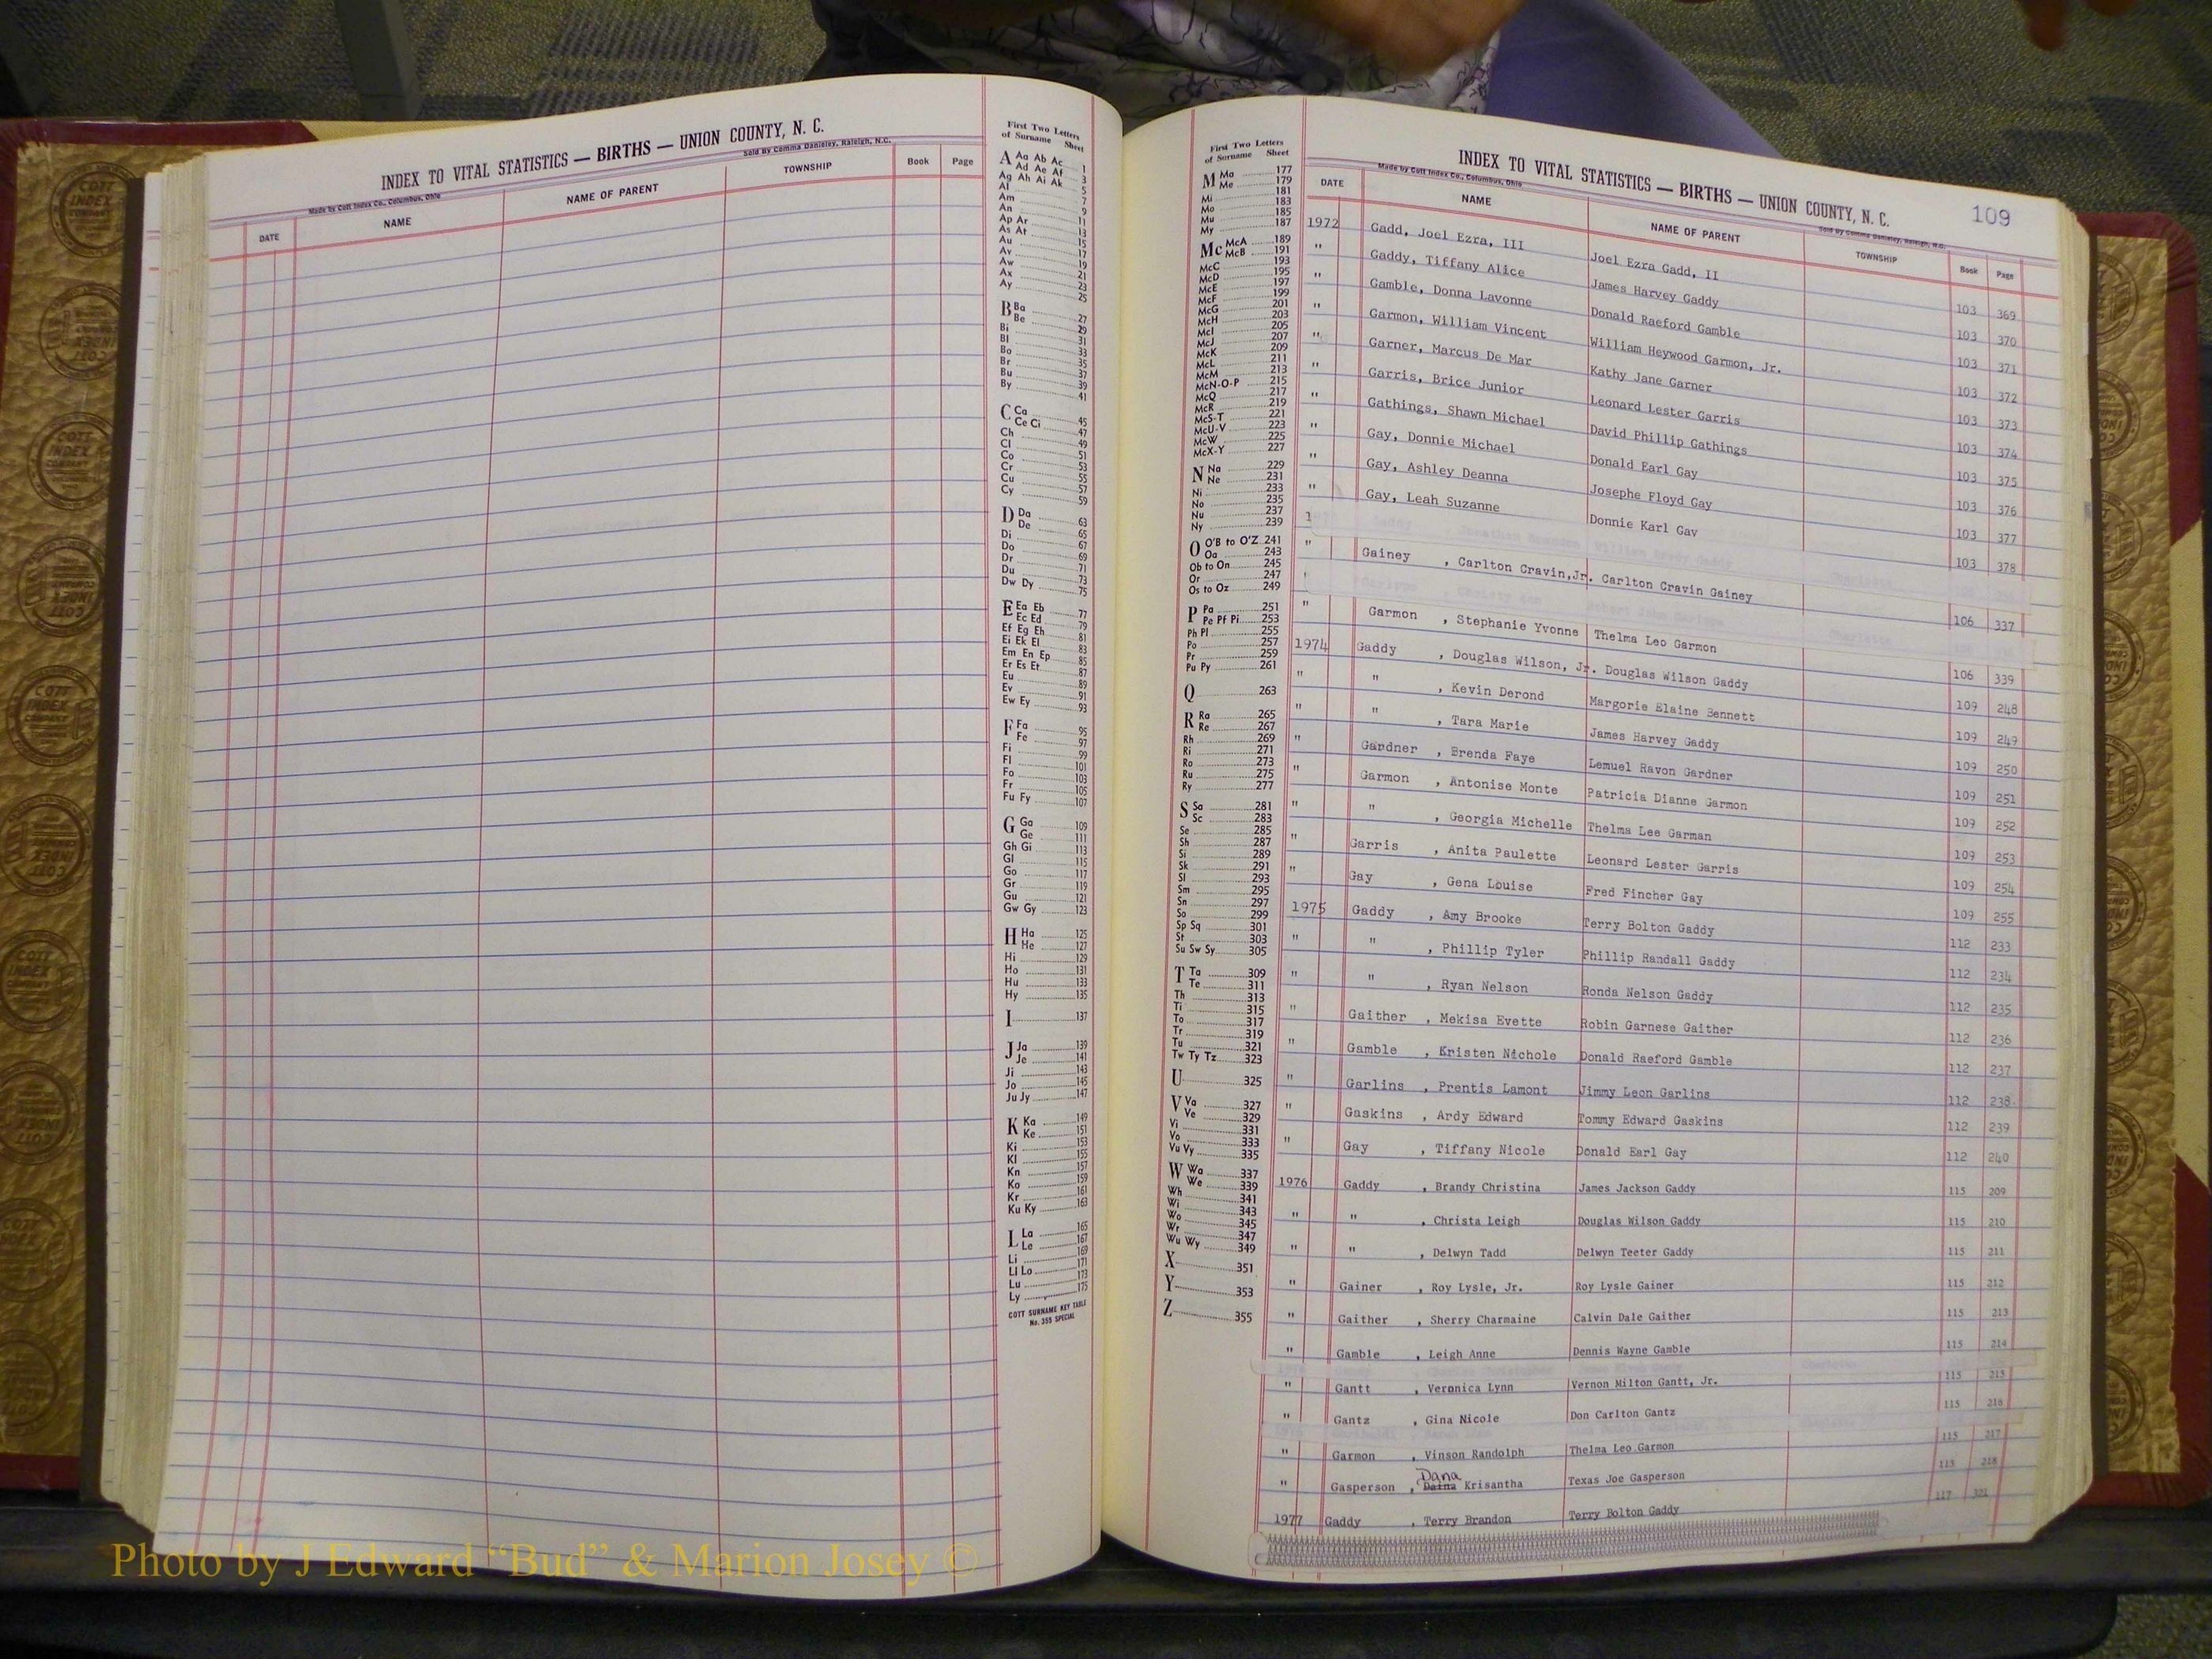 INDEX TO VITAL STATISTICS — BIRTHS — UNION COUNTY, N. C.
Made by Cott Index Co., Columbus, Ohio
Sold By Comma Danieley, Raleigh, N.C.
DATE NAME NAME OF PARENT TOWNSHIP Book Page
First Two Letters
of Surname Sheet
A Aa Ab Ac 1
Ad Ae Af 3
Ag Ah Ai Ak 5
Al 7
Am 9
An 11
Ap Ar 13
As At 15
Au 17
Av 19
Aw 21
Ax 23
Ay 25
B Ba 27
Be 29
Bi 31
Bl 33
Bo 35
Br 37
Bu 39
By 41
C Ca 45
Ce Ci 47
Ch 49
Cl 51
Co 53
Cr 55
Cu 57
Cy 59
D Da 63
De 65
Di 67
Do 69
Dr 71
Du 73
Dw Dy 75
E Ea Eb 77
Ec Ed 79
Ef Eg Eh 81
Ei Ek El 83
Em En Ep 85
Er Es Et 87
Eu 89
Ev 91
Ew Ey 93
F Fa 95
Fe 97
Fi 99
Fl 101
Fo 103
Fr 105
Fu Fy 107
G Ga 109
Ge 111
Gh Gi 113
Gl 115
Go 117
Gr 119
Gu 121
Gw Gy 123
H Ha 125
He 127
Hi 129
Ho 131
Hu 133
Hy 135
I 137
J Ja 139
Je 141
Ji 143
Jo 145
Ju Jy 147
K Ka 149
Ke 151
Ki 153
Kl 155
Kn 157
Ko 159
Kr 161
Ku Ky 163
L La 165
Le 167
Li 169
Ll Lo 171
Lu 173
Ly 175
COTT SURNAME KEY TABLE
No. 355 SPECIAL
First Two Letters
of Surname Sheet
M Ma 177
Me 179
Mi 181
Mo 183
Mu 185
My 187
Mc McA 189
McB 191
McC 193
McD 195
McE 197
McF 199
McG 201
McH 203
McI 205
McJ 207
McK 209
McL 211
McM 213
McN-O-P 215
McQ 217
McR 219
McS-T 221
McU-V 223
McW 225
McX-Y 227
N Na 229
Ne 231
Ni 233
No 235
Nu 237
Ny 239
O O'B to O'Z 241
Oa 243
Ob to On 245
Or 247
Os to Oz 249
P Pa 251
Pe Pf Pi 253
Ph Pl 255
Po 257
Pr 259
Pu Py 261
Q 263
R Ra 265
Re 267
Rh 269
Ri 271
Ro 273
Ru 275
Ry 277
S Sa 281
Sc 283
Se 285
Sh 287
Si 289
Sk 291
Sl 293
Sm 295
Sn 297
So 299
Sp Sq 301
St 303
Su Sw Sy 305
T Ta 309
Te 311
Th 313
Ti 315
To 317
Tr 319
Tu 321
Tw Ty Tz 323
U 325
V Va 327
Ve 329
Vi 331
Vo 333
Vu Vy 335
W Wa 337
We 339
Wh 341
Wi 343
Wo 345
Wr 347
Wu Wy 349
X 351
Y 353
Z 355
INDEX TO VITAL STATISTICS — BIRTHS — UNION COUNTY, N. C. 109
Made by Cott Index Co., Columbus, Ohio
Sold By Comma Danieley, Raleigh, N.C.
DATE NAME NAME OF PARENT TOWNSHIP Book Page
1972 Gadd, Joel Ezra, III Joel Ezra Gadd, II 103 369
" Gaddy, Tiffany Alice James Harvey Gaddy 103 370
" Gamble, Donna Lavonne Donald Raeford Gamble 103 371
" Garmon, William Vincent William Heywood Garmon, Jr. 103 372
" Garner, Marcus De Mar Kathy Jane Garner 103 373
" Garris, Brice Junior Leonard Lester Garris 103 374
" Gathings, Shawn Michael David Phillip Gathings 103 375
" Gay, Donnie Michael Donald Earl Gay 103 376
" Gay, Ashley Deanna Josephe Floyd Gay 103 377
" Gay, Leah Suzanne Donnie Karl Gay 103 378
1
" Gainey , Carlton Cravin,Jr. Carlton Cravin Gainey 106 337
" Garmon , Stephanie Yvonne Thelma Leo Garmon 106 339
1974 Gaddy , Douglas Wilson, Jr. Douglas Wilson Gaddy 109 248
" " , Kevin Derond Margorie Elaine Bennett 109 249
" " , Tara Marie James Harvey Gaddy 109 250
" Gardner , Brenda Faye Lemuel Ravon Gardner 109 251
" Garmon , Antonise Monte Patricia Dianne Garmon 109 252
" " , Georgia Michelle Thelma Lee Garman 109 253
" Garris , Anita Paulette Leonard Lester Garris 109 254
" Gay , Gena Louise Fred Fincher Gay 109 255
1975 Gaddy , Amy Brooke Terry Bolton Gaddy 112 233
" " , Phillip Tyler Phillip Randall Gaddy 112 234
" " , Ryan Nelson Ronda Nelson Gaddy 112 235
" Gaither , Mekisa Evette Robin Garnese Gaither 112 236
" Gamble , Kristen Nichole Donald Raeford Gamble 112 237
" Garlins , Prentis Lamont Jimmy Leon Garlins 112 238
" Gaskins , Ardy Edward Tommy Edward Gaskins 112 239
" Gay , Tiffany Nicole Donald Earl Gay 112 240
1976 Gaddy , Brandy Christina James Jackson Gaddy 115 209
" " , Christa Leigh Douglas Wilson Gaddy 115 210
" " , Delwyn Tadd Delwyn Teeter Gaddy 115 211
" Gainer , Roy Lysle, Jr. Roy Lysle Gainer 115 212
" Gaither , Sherry Charmaine Calvin Dale Gaither 115 213
" Gamble , Leigh Anne Dennis Wayne Gamble 115 214
" Gantt , Veronica Lynn Vernon Milton Gantt, Jr. 115 215
" Gantz , Gina Nicole Don Carlton Gantz 115 216
" Garmon , Vinson Randolph Thelma Leo Garmon 115 217
Dana
" Gasperson , Daina Krisantha Texas Joe Gasperson 115 218
1977 Gaddy , Terry Brandon Terry Bolton Gaddy 117 321
Photo by J Edward “Bud” & Marion Josey ©